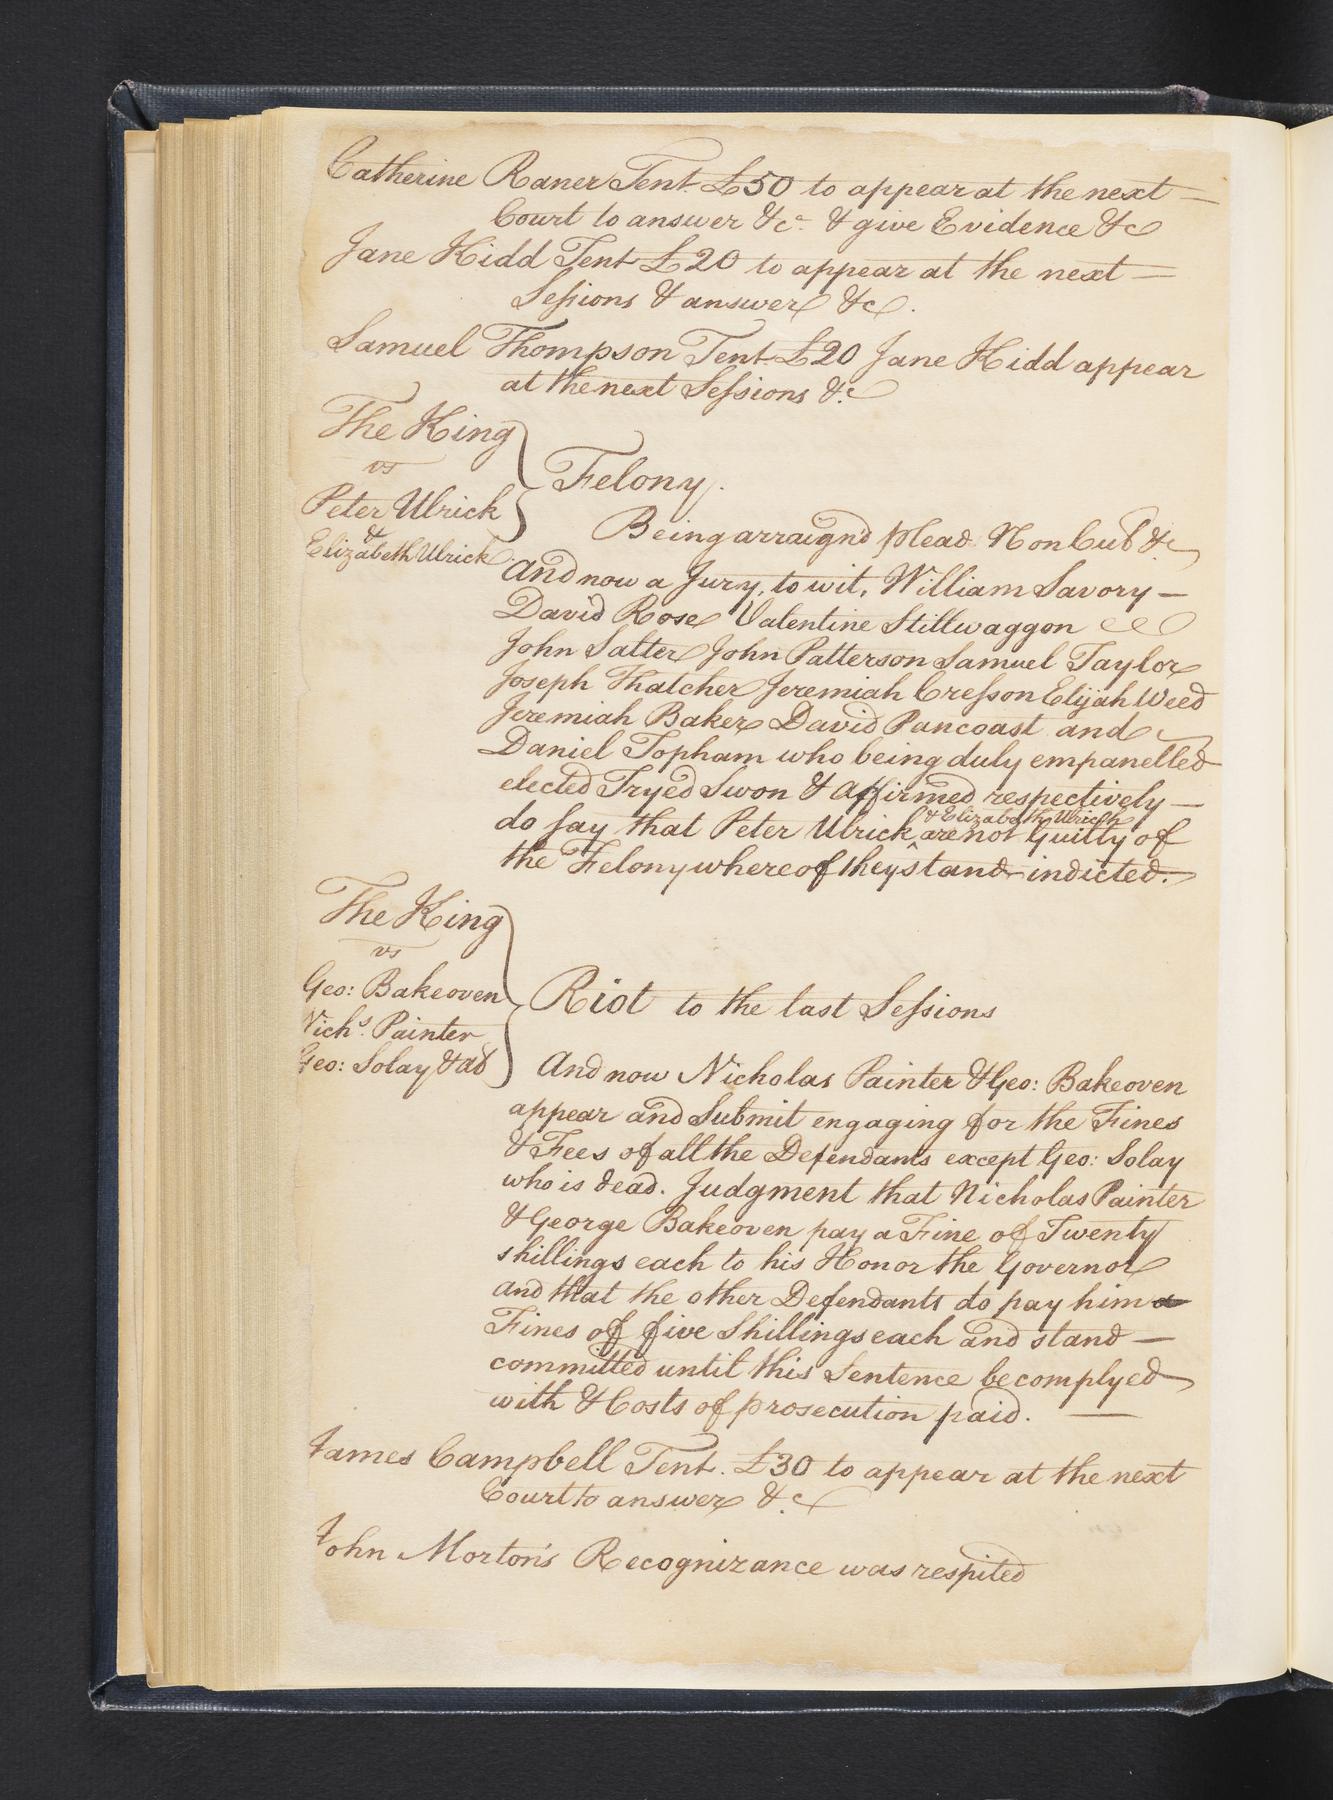 Catherine Raner Tent £50 to appear at the next —
Court to answer &c. & give Evidence &c
Jane Kidd Tent £20 to appear at the next —
Sessions & answer &c.
Samuel Thompson Tent £20 Jane Kidd appear
at the next Sessions &c
The King
vs
Peter Ulrick
&
Elizabeth Ulrick
Felony.
Being arraign'd plead Non Cul &c
And now a Jury, to wit, William Savory —
David Rose Valentine Stillwaggon
John Salter John Patterson Samuel Taylor
Joseph Thatcher Jeremiah Cresson Elijah Weed
Jeremiah Baker David Pancoast and
Daniel Topham who being duly empanelled
elected Tryed Swon & Affirmed respectively —
do say that Peter Ulrick ^ & Elizabeth Ulrich are not Guilty of
the Felony whereof they stand indicted.
The King
vs
Geo: Bakeoven
Nichs. Painter
Geo: Solay & al
Riot to the last Sessions
And now Nicholas Painter & Geo: Bakeoven
appear and Submit engaging for the Fines
& Fees of all the Defendants except Geo: Solay
who is dead. Judgment that Nicholas Painter
& George Bakeoven pay a Fine of Twenty
shillings each to his Honor the Governor
and that the other Defendants do pay him a
Fines of five Shillings each and stand —
committed until this Sentence be complyed
with & Costs of prosecution paid. —
James Campbell Tent. £30 to appear at the next
Court to answer &c
John Morton's Recognizance was respited